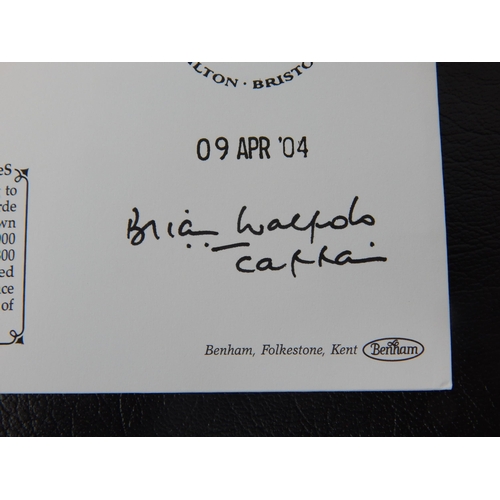 LTON · BRISTO
09 APR '04
es
g to
rde
wn
000
300
ed
ice
of
Brian Walpole
Captain
Benham, Folkestone, Kent
Benham